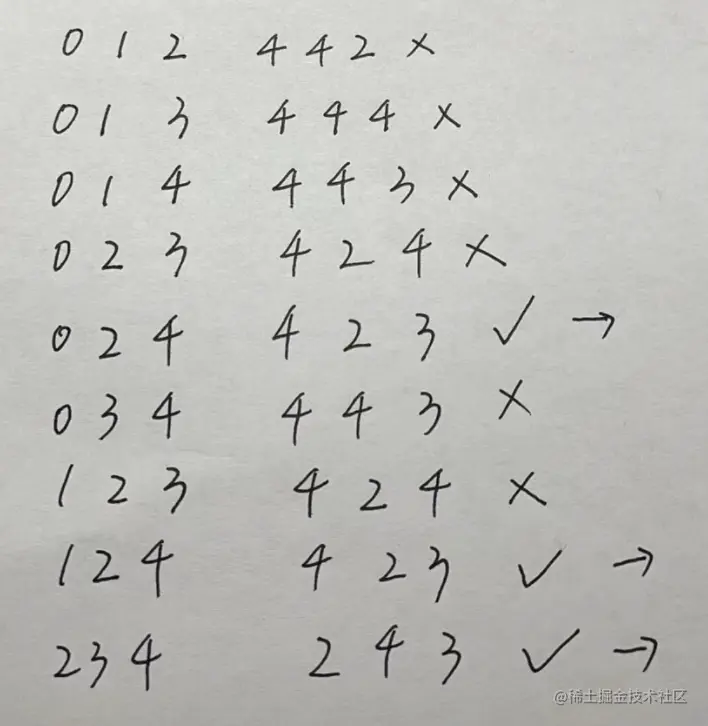 0 1 2 4 4 2 ×
0 1 3 4 4 4 ×
0 1 4 4 4 3 ×
0 2 3 4 2 4 ×
0 2 4 4 2 3 ✓ →
0 3 4 4 4 3 ×
1 2 3 4 2 4 ×
1 2 4 4 2 3 ✓ →
2 3 4 2 4 3 ✓ →
@稀土掘金技术社区